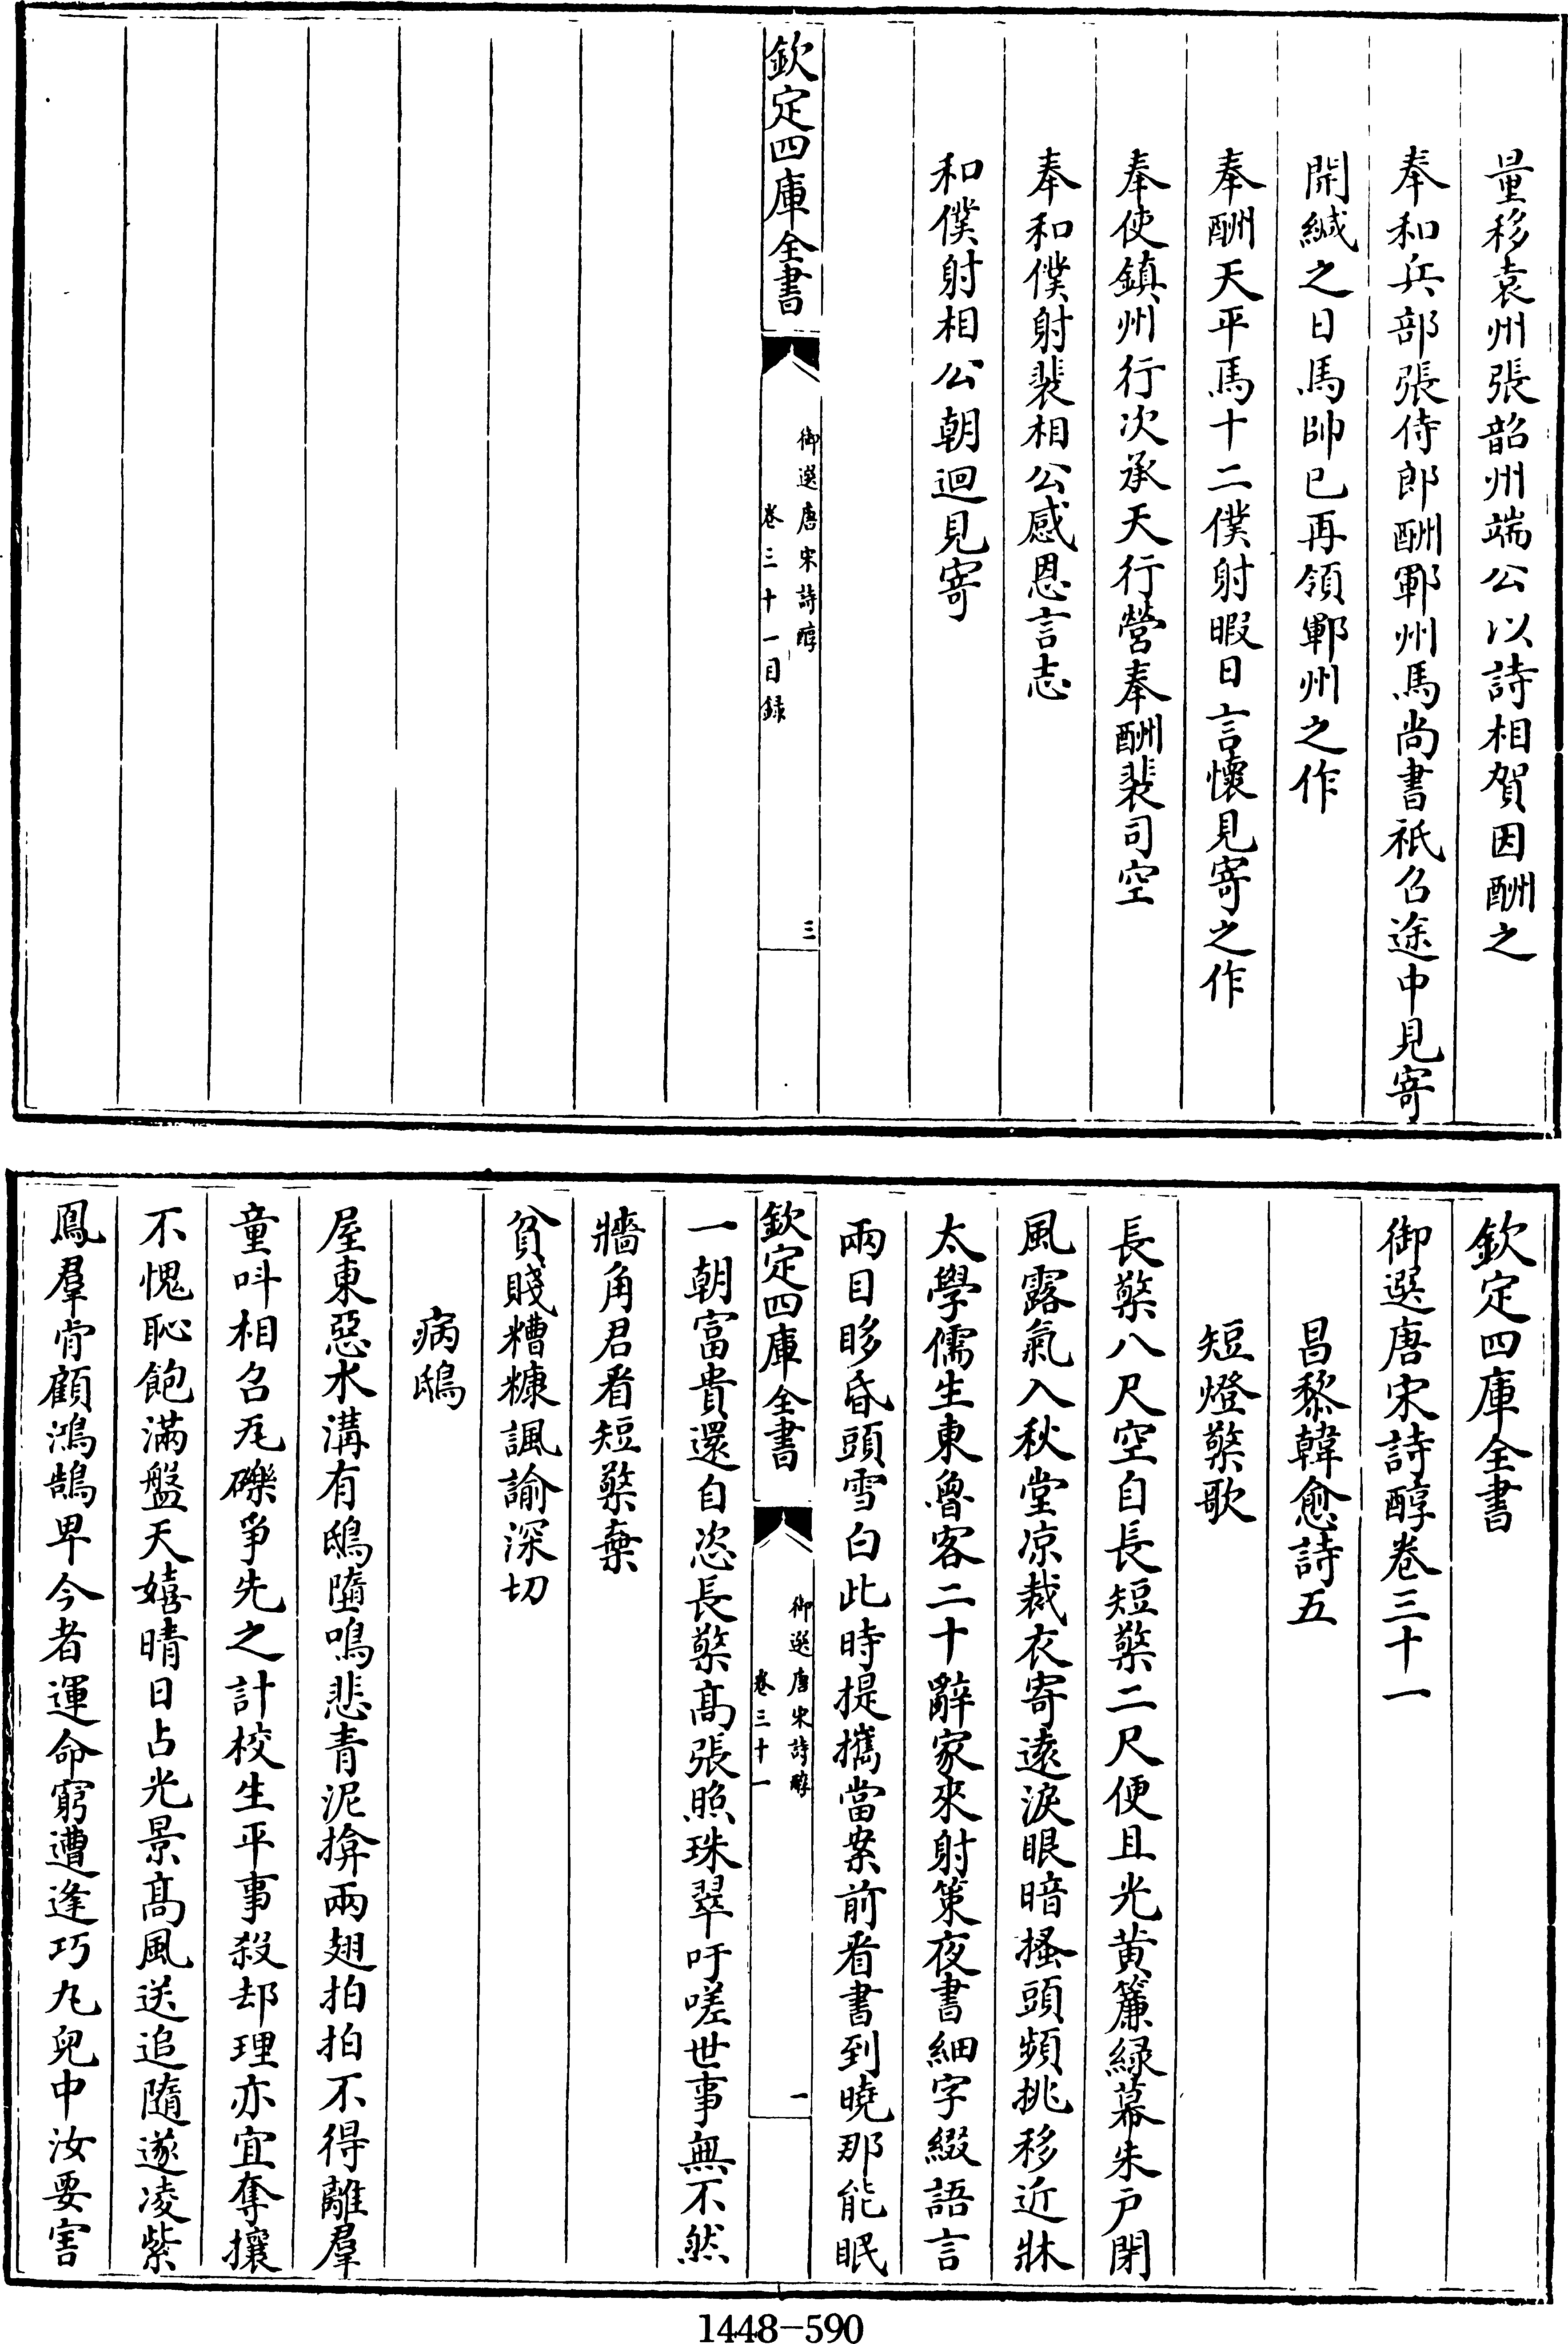 量移袁州張韶州端公以詩相賀因酬之
奉和兵部張侍郎酬鄆州馬尚書祇召途中見寄
開緘之日馬帥已再領鄆州之作
奉酬天平馬十二僕射暇日言懷見寄之作
奉使鎮州行次承天行營奉酬裴司空
奉和僕射裴相公感恩言志
和僕射相公朝迴見寄
欽定四庫全書
御選唐宋詩醇
卷三十一目録
三
欽定四庫全書
御選唐宋詩醇卷三十一
昌黎韓愈詩五
短燈檠歌
長檠八尺空自長短檠二尺便且光黄簾緑幕朱户閉
風露氣入秋堂凉裁衣寄逺淚眼暗搔頭頻挑移近牀
太學儒生東魯客二十辭家來射策夜書細字綴語言
兩目眵昏頭雪白此時提攜當案前看書到曉那能眠
欽定四庫全書
御選唐宋詩醇
卷三十一
一
一朝富貴還自恣長檠髙張照珠翠吁嗟世事無不然
牆角君看短檠棄
貧賤糟糠諷諭深切
病鴟
屋東惡水溝有鴟墮鳴悲青泥揜兩翅拍拍不得離羣
童叫相召瓦礫爭先之計校生平事殺却理亦宜奪攘
不愧恥飽滿盤天嬉晴日占光景髙風送追隨遂凌紫
鳳羣肯顧鴻鵠卑今者運命窮遭逢巧丸兒中汝要害
1448-590